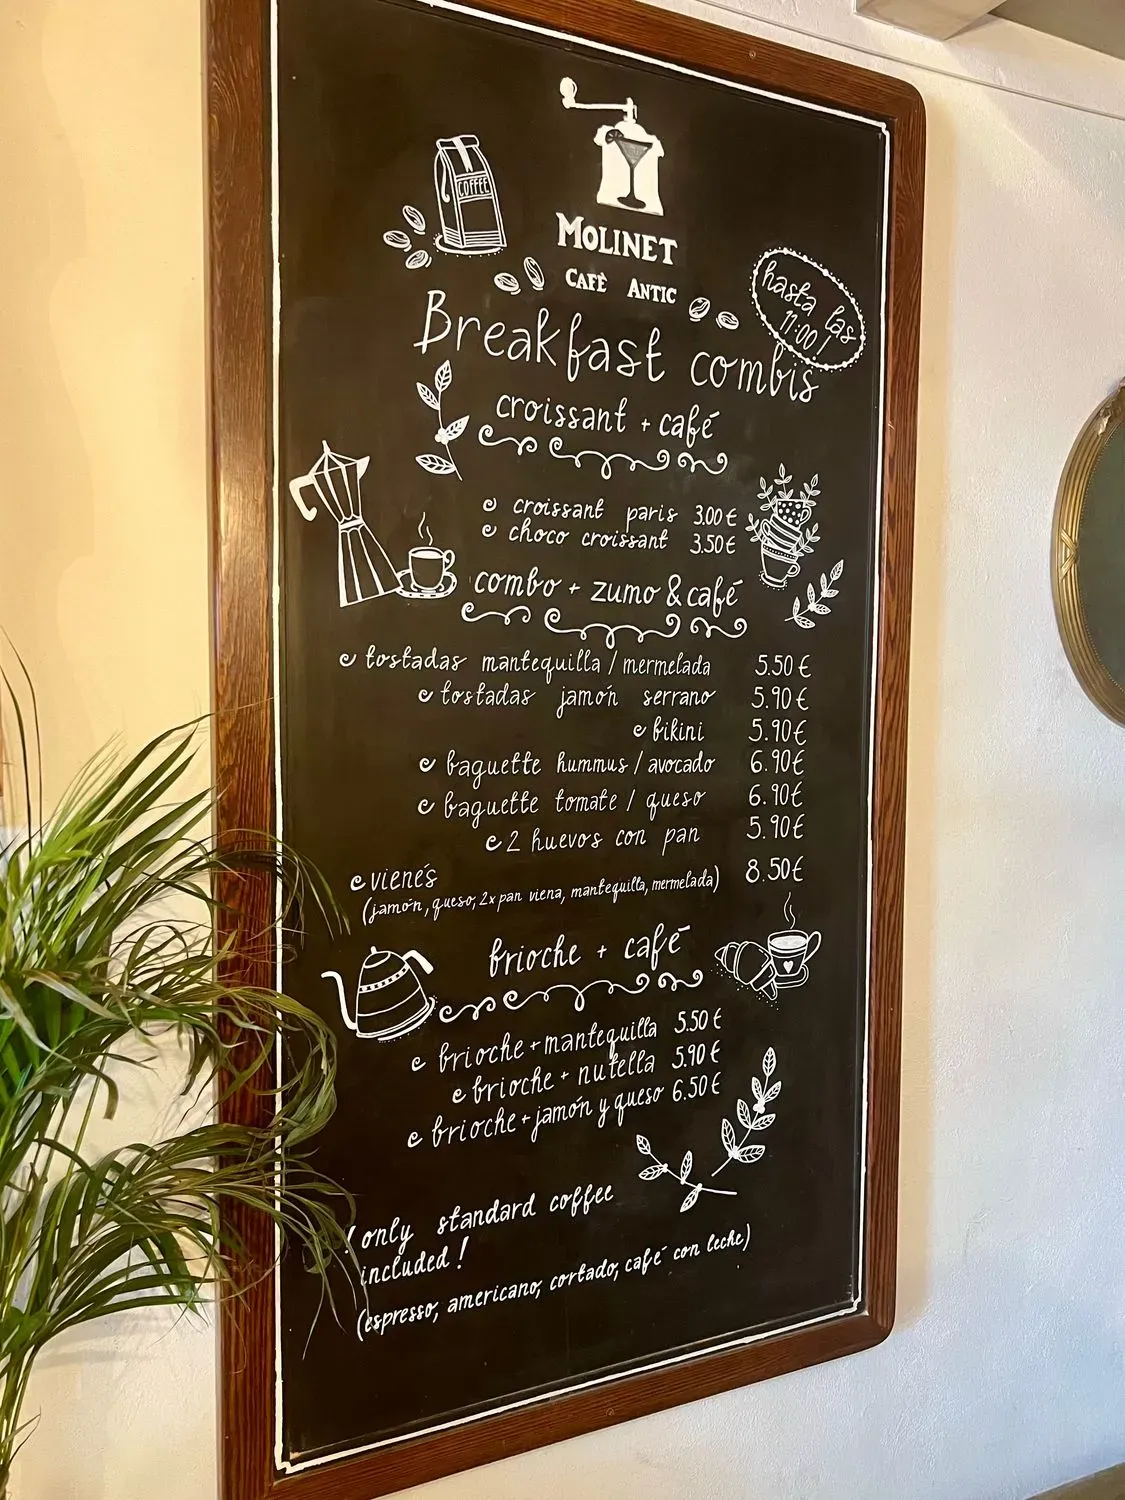 COFFEE
MOLINET
CAFÈ ANTIC
hasta las
11:00!
Breakfast combis
croissant + café
croissant paris 3.00€
choco croissant 3.50€
combo + zumo & café
tostadas mantequilla / mermelada 5.50€
tostadas jamón serrano 5.90€
bikini 5.90€
baguette hummus / avocado 6.90€
baguette tomate / queso 6.90€
2 huevos con pan 5.90€
vienés 8.50€
(jamón, queso, 2x pan viena, mantequilla, mermelada)
brioche + café
brioche + mantequilla 5.50€
brioche + nutella 5.90€
brioche + jamón y queso 6.50€
! only standard coffee
included!
(espresso, americano, cortado, café con leche)